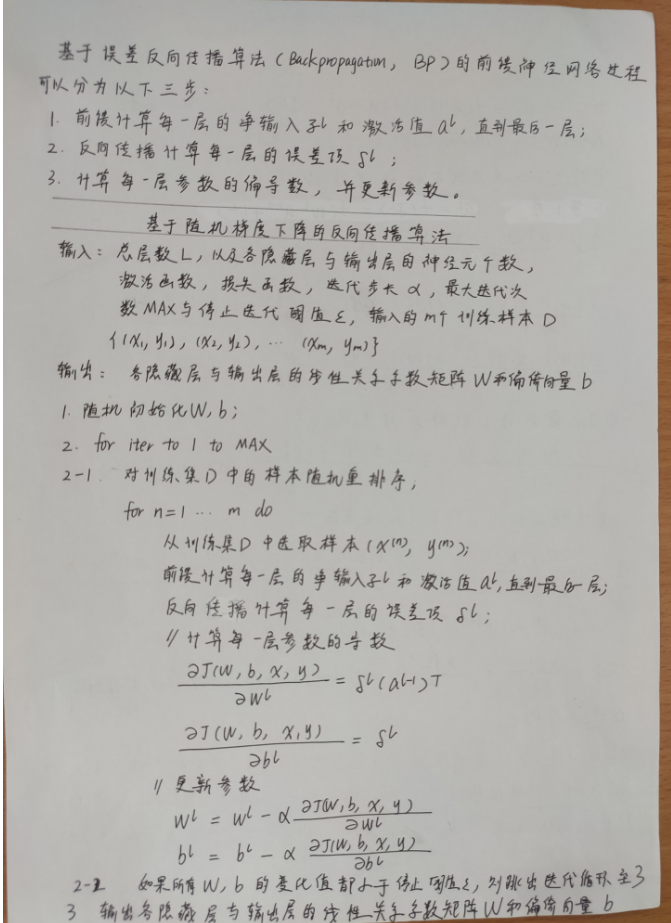 基于误差反向传播算法(Backpropagation, BP)的前馈神经网络过程
可以分为以下三步:
1. 前馈计算每一层的净输入zˡ和激活值aˡ,直到最后一层;
2. 反向传播计算每一层的误差项δˡ;
3. 计算每一层参数的偏导数,并更新参数。
基于随机梯度下降的反向传播算法
输入:总层数L,以及各隐藏层与输出层的神经元个数,
激活函数,损失函数,迭代步长α,最大迭代次
数MAX与停止迭代阈值ε,输入的m个训练样本D
{(x₁, y₁), (x₂, y₂), ··· (xₘ, yₘ)}
输出:各隐藏层与输出层的线性关系系数矩阵W和偏倚向量b
1. 随机初始化W, b;
2. for iter to 1 to MAX
2-1. 对训练集D中的样本随机重排序,
for n=1 ··· m do
从训练集D中选取样本(x⁽ⁿ⁾, y⁽ⁿ⁾);
前馈计算每一层的净输入zˡ和激活值aˡ,直到最后一层;
反向传播计算每一层的误差项δˡ;
// 计算每一层参数的导数
∂J(W, b, x, y)/∂Wˡ = δˡ(aˡ⁻¹)T
∂J(W, b, x, y)/∂bˡ = δˡ
// 更新参数
Wˡ = Wˡ - α ∂J(W, b, x, y)/∂Wˡ
bˡ = bˡ - α ∂J(W, b, x, y)/∂bˡ
2-2 如果所有W, b的变化值都小于停止阈值ε,则跳出迭代循环至3
3 输出各隐藏层与输出层的线性关系系数矩阵W和偏倚向量b